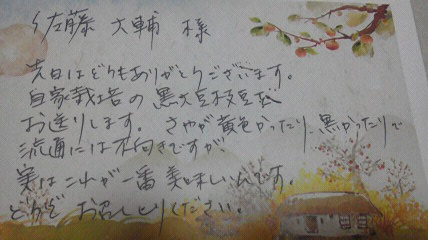 佐藤 大輔 様
先日はどうもありがとうございます。
自家栽培の、黒大豆枝豆を
お送りします。さやが黄色かったり、黒かったりで
流通には不向きですが、
実はこれが一番美味しいんです。
どうぞ お召しとりください。